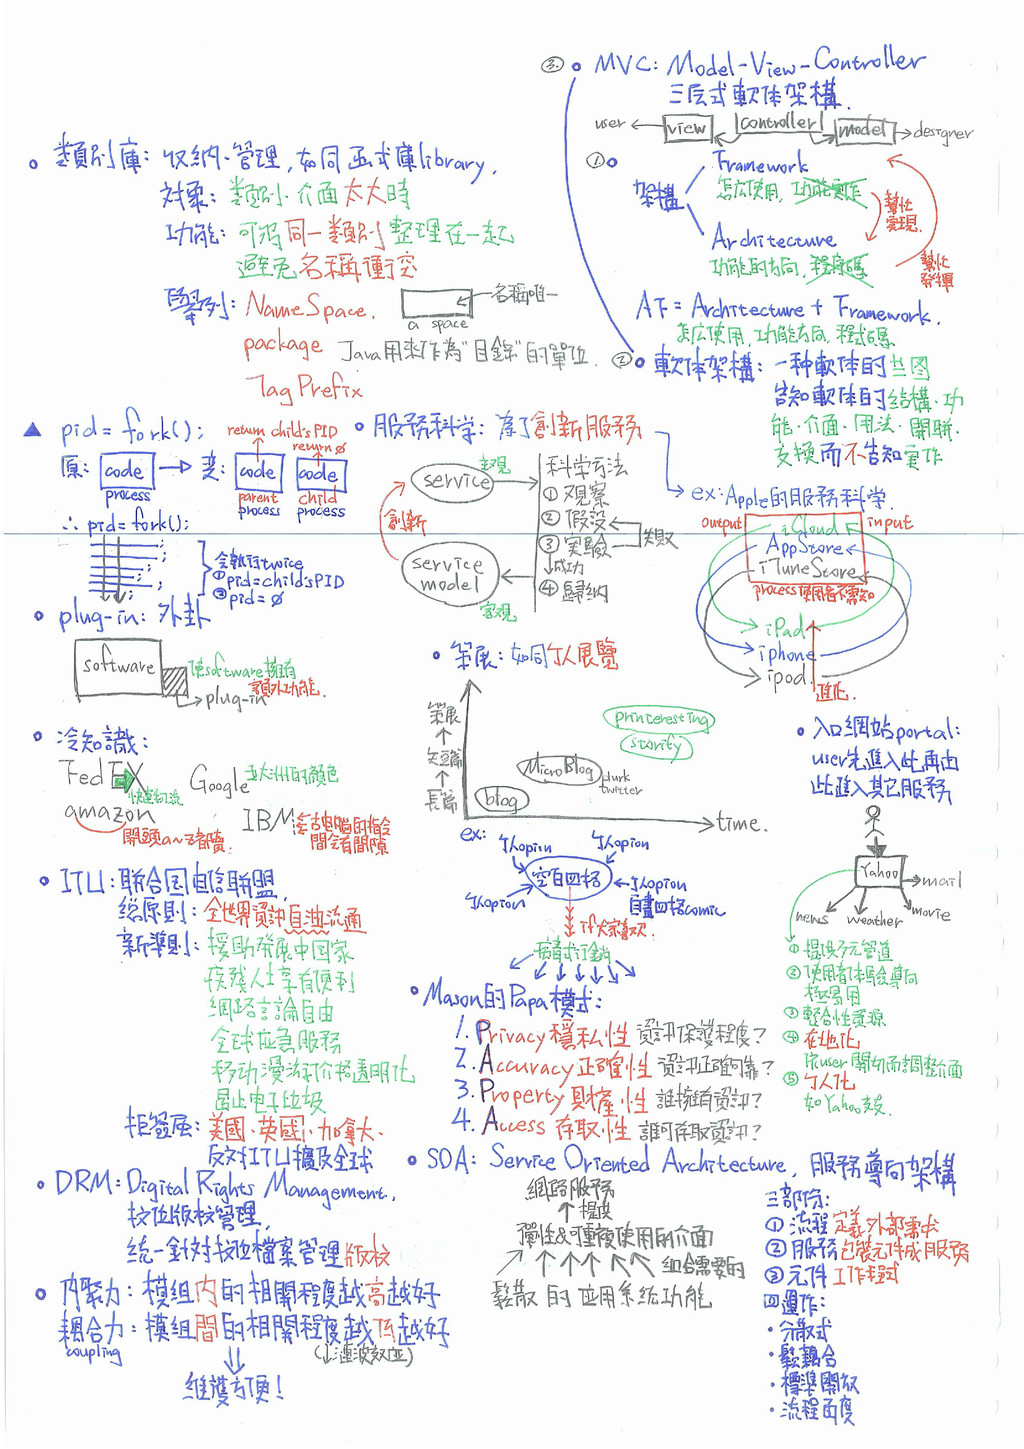 ③ • MVC: Model-View-Controller
三层式軟体架構.
user view controller model designer
• 類別庫: 收納·管理,如同函式庫library,
対象: 類別·介面太大時
功能: 可將同一類別整理在一起
避免名稱衝突
舉列: NameSpace. 名稱唯一
a space
package Java用來作為"目錄"的單位.
Tag Prefix
① •
架構
Framework
怎広使用, 功能實作
Architecture
功能的方向, 程序碼
幫忙
實現.
幫忙
發揮
AF = Architecture + Framework.
怎広使用, 功能方向, 程式碼
② • 軟体架構: 一种軟体的
告知軟体的結構·功
能·介面·用法·関聯·
交換而不告知實作
▲ pid = fork();
return child's PID
return ∅
原: code → 变: code code
process
parent
process
child
process
∴ pid = fork();
会執行twice
① pid = child's PID
② pid = ∅
• 服務科學: 為了創新服務
service
主观
創新
service
model
客观
科学方法
① 观察
② 假设
③ 实驗
失败
成功
④ 歸納
ex: Apple的服務科学.
output input
iCloud
AppStore
iTuneStore
process使用者不需知
iPad
iphone
ipod.
進化
• plug-in: 外卦
software
使software擁有
額外功能.
plug-in
• 策展: 如同个人展覽
策展
↑
短篇
↑
長篇
printeresting
storify
MicroBlog
plurk
twitter
blog
time.
• 冷知識:
FedEX
快速物流
Google 五大洲的顏色
amazon
開頭a~z皆賣.
IBM
間会有間隙
• 入口網站portal:
user先進入此再由
此進入其它服務
Yahoo
mail
movie
weather
news
① 提供多元管道
② 使用者体驗導向
極易用
③ 整合性資源
④ 在地化
依user関切而調整介面
⑤ 个人化
如Yahoo
ex: 个人opion 个人opion
空白四格
个人opion 个人opion
自畫四格comic
if大家喜欢.
病毒式行銷
• ITU: 聯合国电信联盟.
總原則: 全世界資訊自由流通
新準則: 援助発展中国家
疾残人士享有便利
網路言論自由
全球应急服務
移动漫游价格透明化
电子垃圾
拒簽: 美國·英國·加拿大.
反対ITU擴及全球
• Mason的Papa模式:
1. Privacy 穩私性 資訊保護程度?
2. Accuracy 正確性 資訊正確可靠?
3. Property 財產性 誰擁有資訊?
4. Access 存取性 誰可存取資訊?
• DRM: Digital Rights Management.
数位版权管理,
統一針対数位檔案管理版权
• SOA: Service Oriented Architecture, 服務導向架構
網路服務
↑ 提供
彈性&可重複使用的介面
組合需要的
鬆散的应用系統功能
三部份:
① 流程 定義外部需求
② 服務 包裝元件成服務
③ 元件 工作程式
四運作:
• 分散式
• 鬆耦合
• 標準開放
• 流程面度
• 內聚力: 模組内的相関程度越高越好
耦合力: 模組間的相関程度越低越好
coupling (↓連波效应)
維護方便!